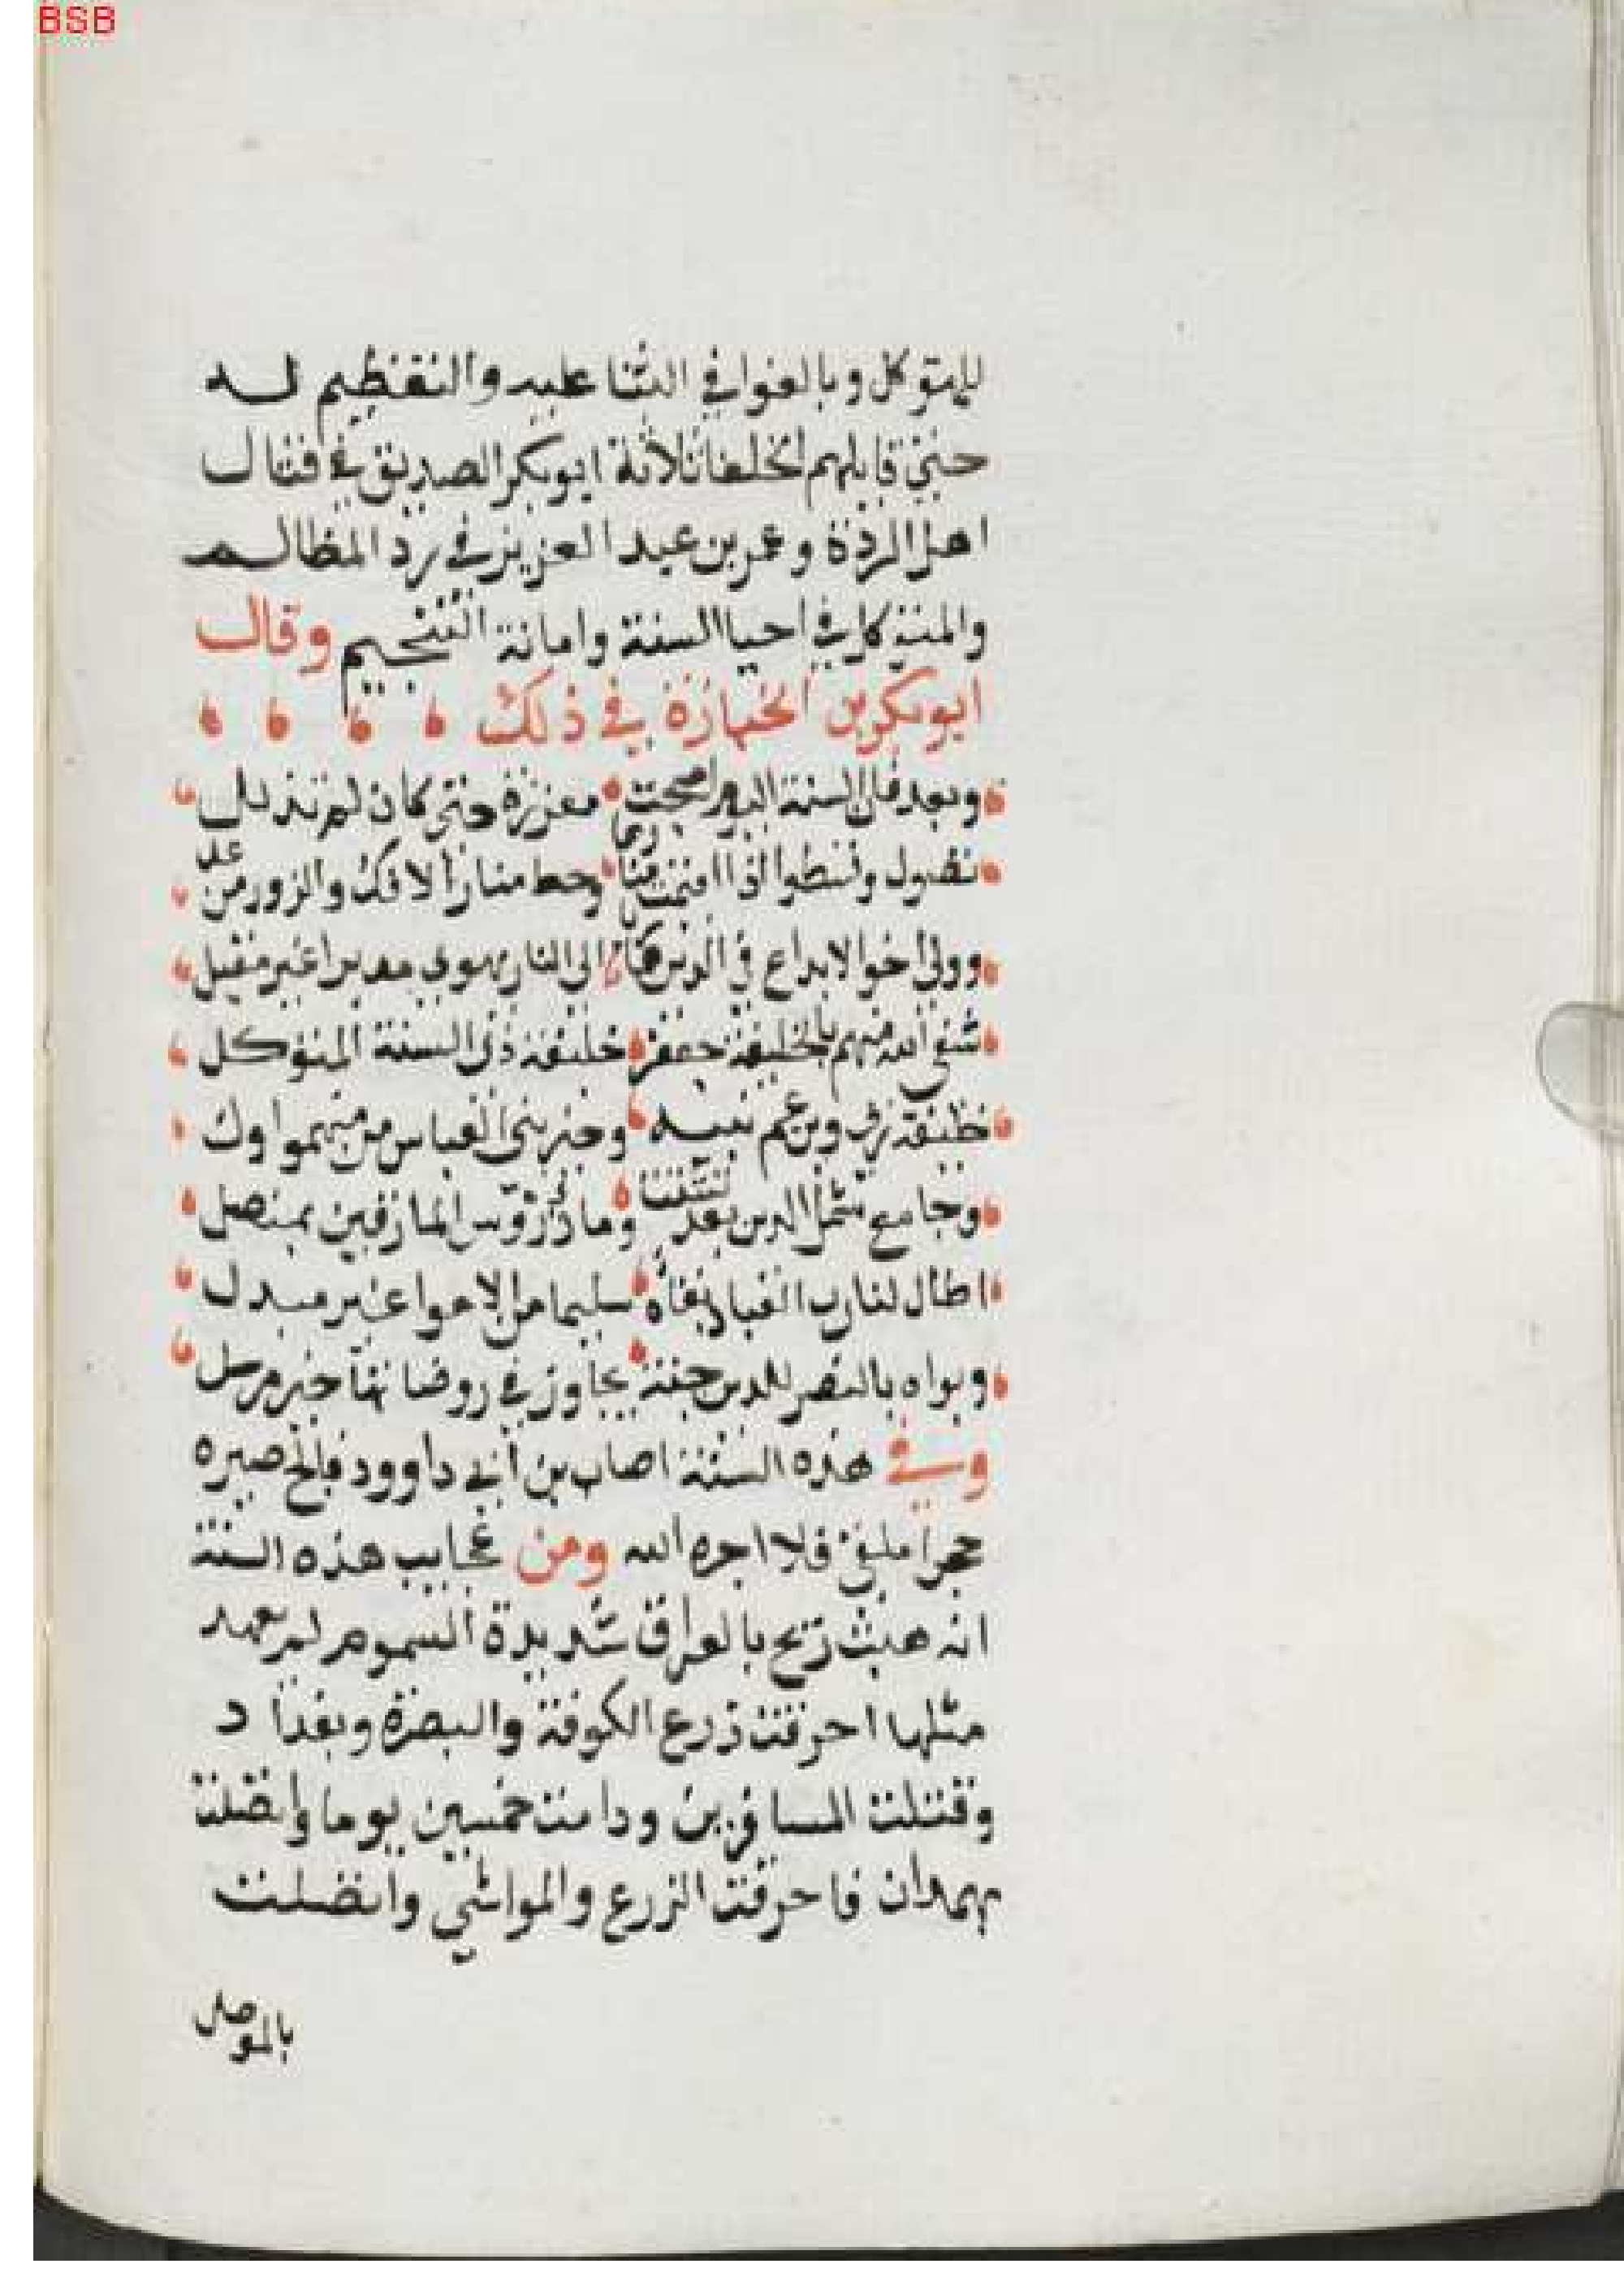 BSB
للمتوكل وبالغوا في الثنا عليه والتعظيم له
حتى قايلهم الخلفا ثلاثة ابو بكر الصديق في قتال
اهل الردة وعمر بن عبد العزيز في رد المظالم
والمتوكل في احيا السنة واماتة التجهيم وقال
ابو بكر بن الخبازة في ذلك
وبعد فان السنة اليوم اصبحت معززة حتى كان لم تذلل
تصول وتسطوا اذا اقيمت منارها وحط منار الافك والزور من عل
وولى اخو الابداع في الدين هاربا الى النار يهوي مدبرا غير مقبل
شفى الله منهم بالخليفة جعفر خليفته ذي السنة المتوكل
خليفة ربي وبن عم نبيه وخير بني العباس من منهموا ول
وجامع شمل الدين بعد تشتت وماري رؤس المارقين بمنصل
اطال لنا رب العباد بقاه سليما من الاهوا غير مبدل
وبواه بالنصر للدين جنة يجاور في روضاتها خير مرسل
وفي هذه السنة اصاب بن ابي داوود فالج صيره
حجرا ملقى فلا اجره الله ومن عجايب هذه السنة
انه هبت ريح بالعراق شديدة السموم لم يعهد
مثلها احرقت زرع الكوفة والبصرة وبغداد
وقتلت المسافرين ودامت خمسين يوما واتصلت
بهمدان فاحرقت الزرع والمواشي واتصلت
بالموصل